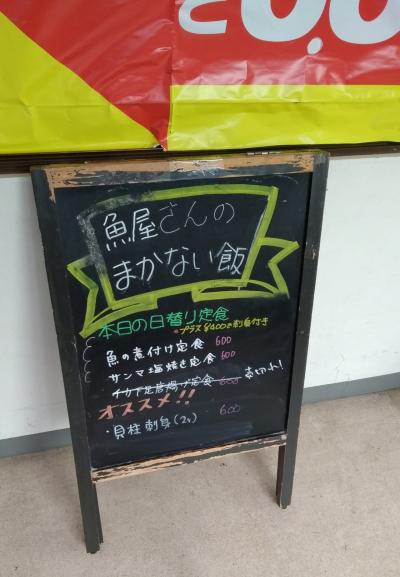 魚屋さんの
まかない飯
本日の日替り定食
*プラス¥400で刺身付き
魚の煮付け定食 600
サンマ塩焼き定食 600
イカ下足唐揚げ定食 600 売切れ!
オススメ!!
・貝柱刺身(2ケ) 600